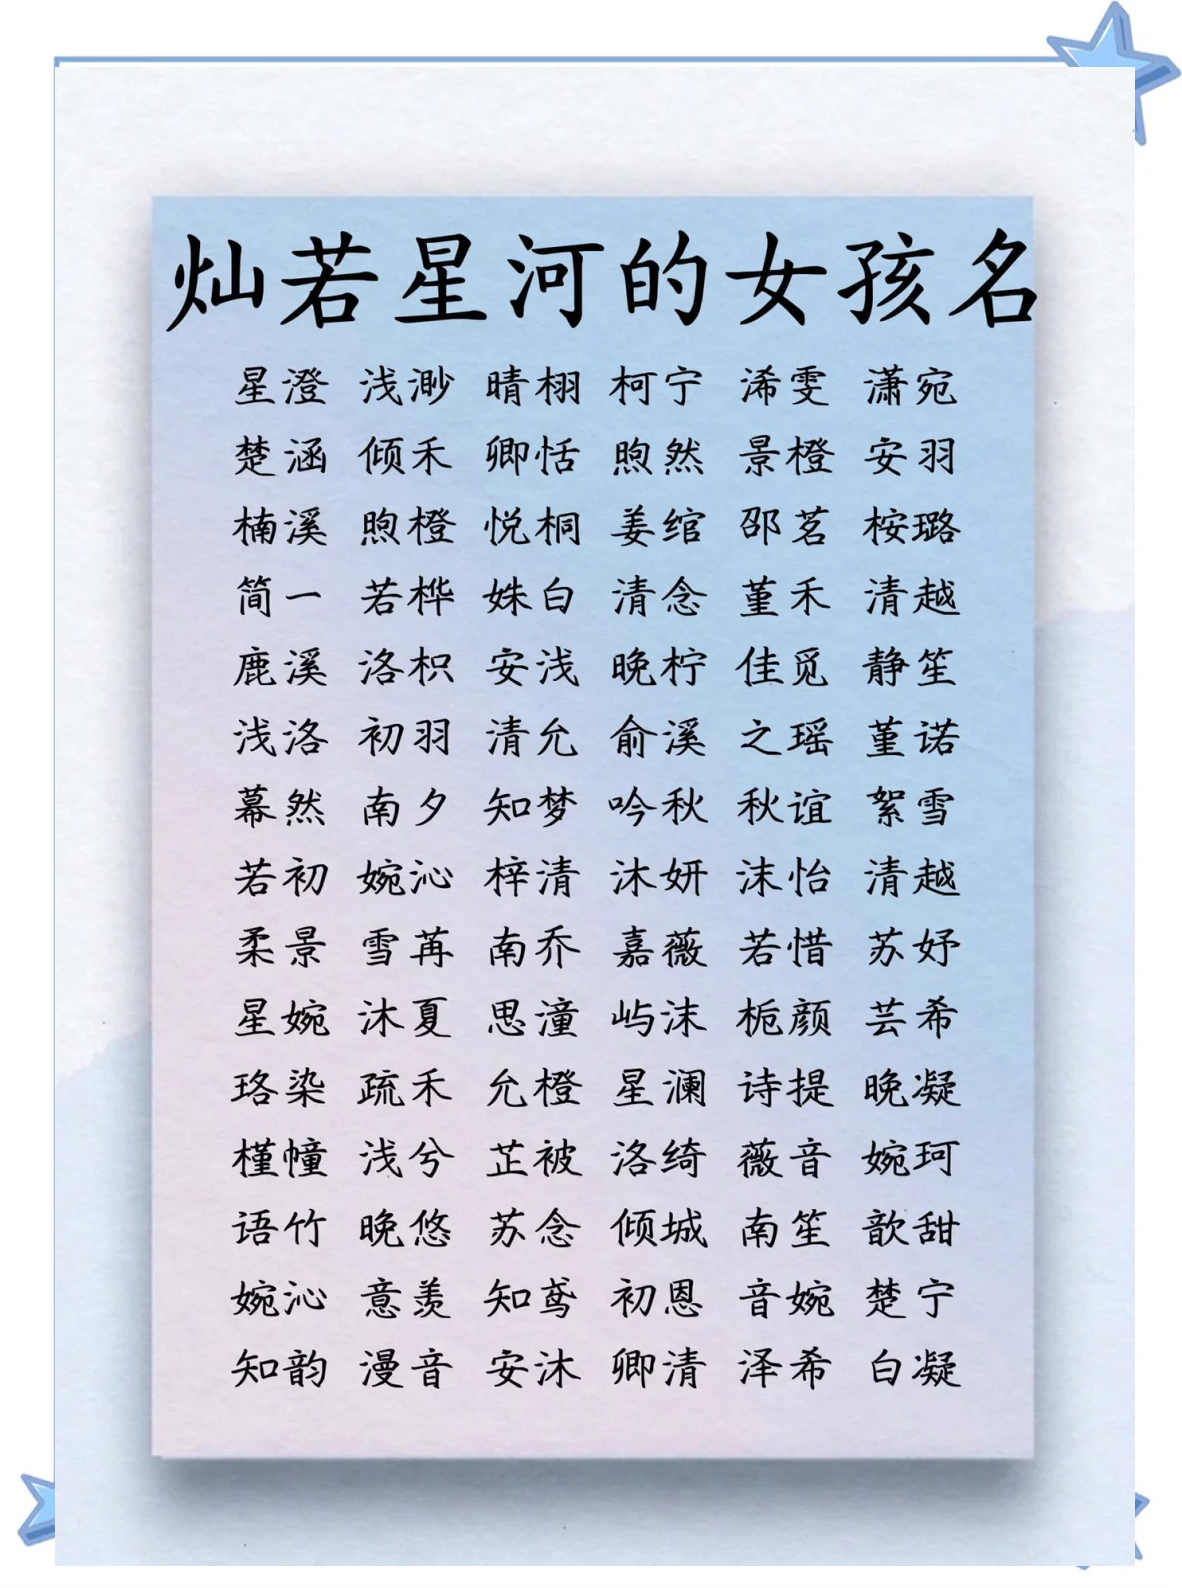 灿若星河的女孩名
星澄 浅渺 晴栩 柯宁 浠雯 潇宛
楚涵 倾禾 卿恬 煦然 景橙 安羽
楠溪 煦橙 悦桐 姜绾 邵茗 桉璐
简一 若桦 姝白 清念 堇禾 清越
鹿溪 洛枳 安浅 晚柠 佳觅 静笙
浅洛 初羽 清允 俞溪 之瑶 堇诺
幕然 南夕 知梦 吟秋 秋谊 絮雪
若初 婉沁 梓清 沐妍 沫怡 清越
柔景 雪苒 南乔 嘉薇 若惜 苏妤
星婉 沐夏 思潼 屿沫 栀颜 芸希
珞染 疏禾 允橙 星澜 诗提 晚凝
槿幢 浅兮 芷被 洛绮 薇音 婉珂
语竹 晚悠 苏念 倾城 南笙 歆甜
婉沁 意羡 知鸢 初恩 音婉 楚宁
知韵 漫音 安沐 卿清 泽希 白凝